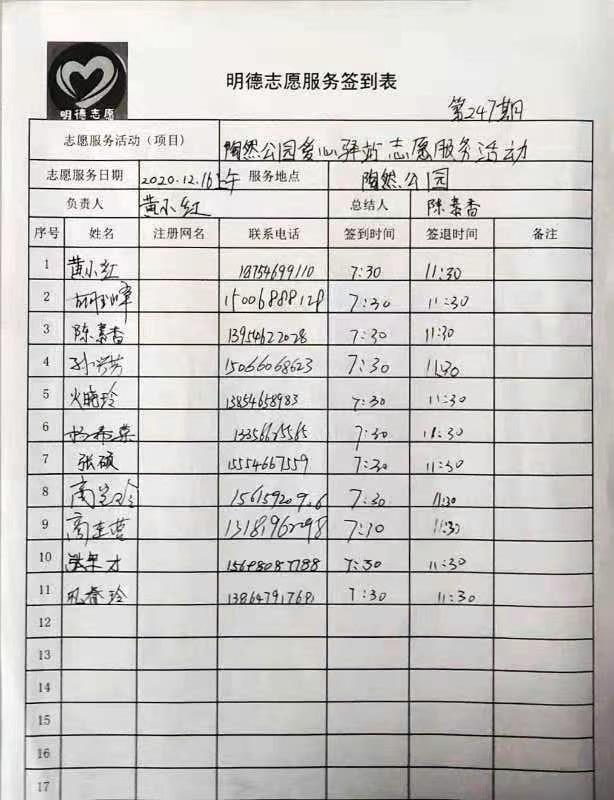 明德志愿
明德志愿服务签到表
第247期
志愿服务活动（项目） 陶然公园爱心驿站志愿服务活动
志愿服务日期 2020.12.16上午 服务地点 陶然公园
负责人 黄小红 总结人 陈素香
序号 姓名 注册网名 联系电话 签到时间 签退时间 备注
1 黄小红 18754699110 7:30 11:30
2 15006888128 7:30 11:30
3 陈素香 13954622028 7:30 11:30
4 孙兴芳 15066068623 7:30 11:30
5 火晓玲 13854658983 7:30 11:30
6 7:30 11:30
7 张硕 15554667559 7:30 11:30
8 7:30 11:30
9 7:30 11:30
10 7:30 11:30
11 巩春玲 13864791768 7:30 11:30
12
13
14
15
16
17